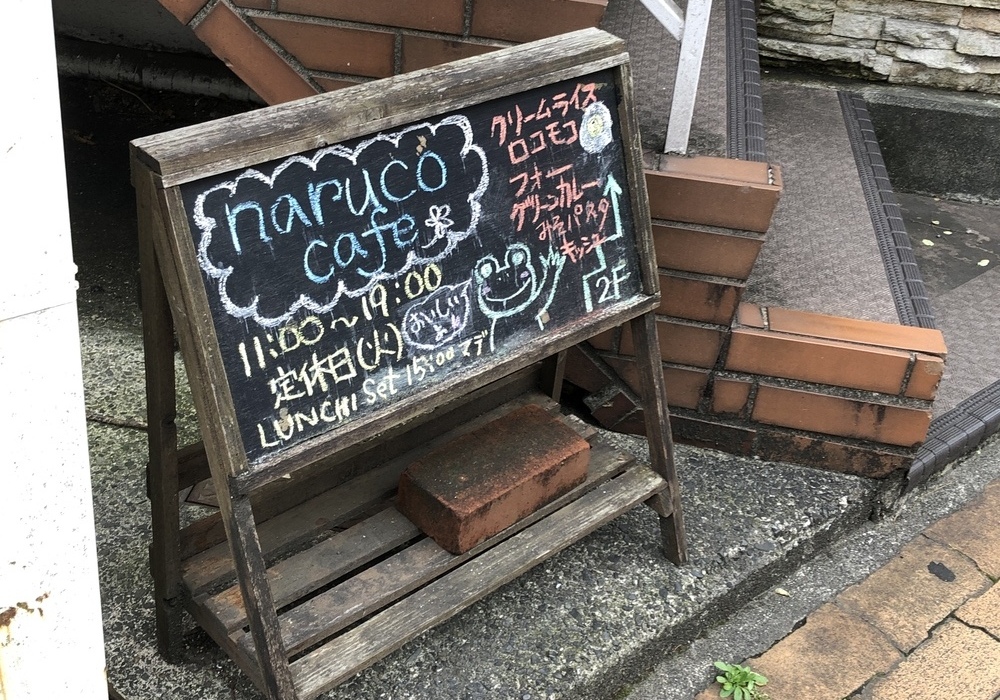 naruco
cafe
11:00～19:00
定休日(火)
LUNCH Set 15:00マデ
おいしいよ
クリームライス
ロコモコ
フォー
グリーンカレー
みそパスタ
キッシュ
2F